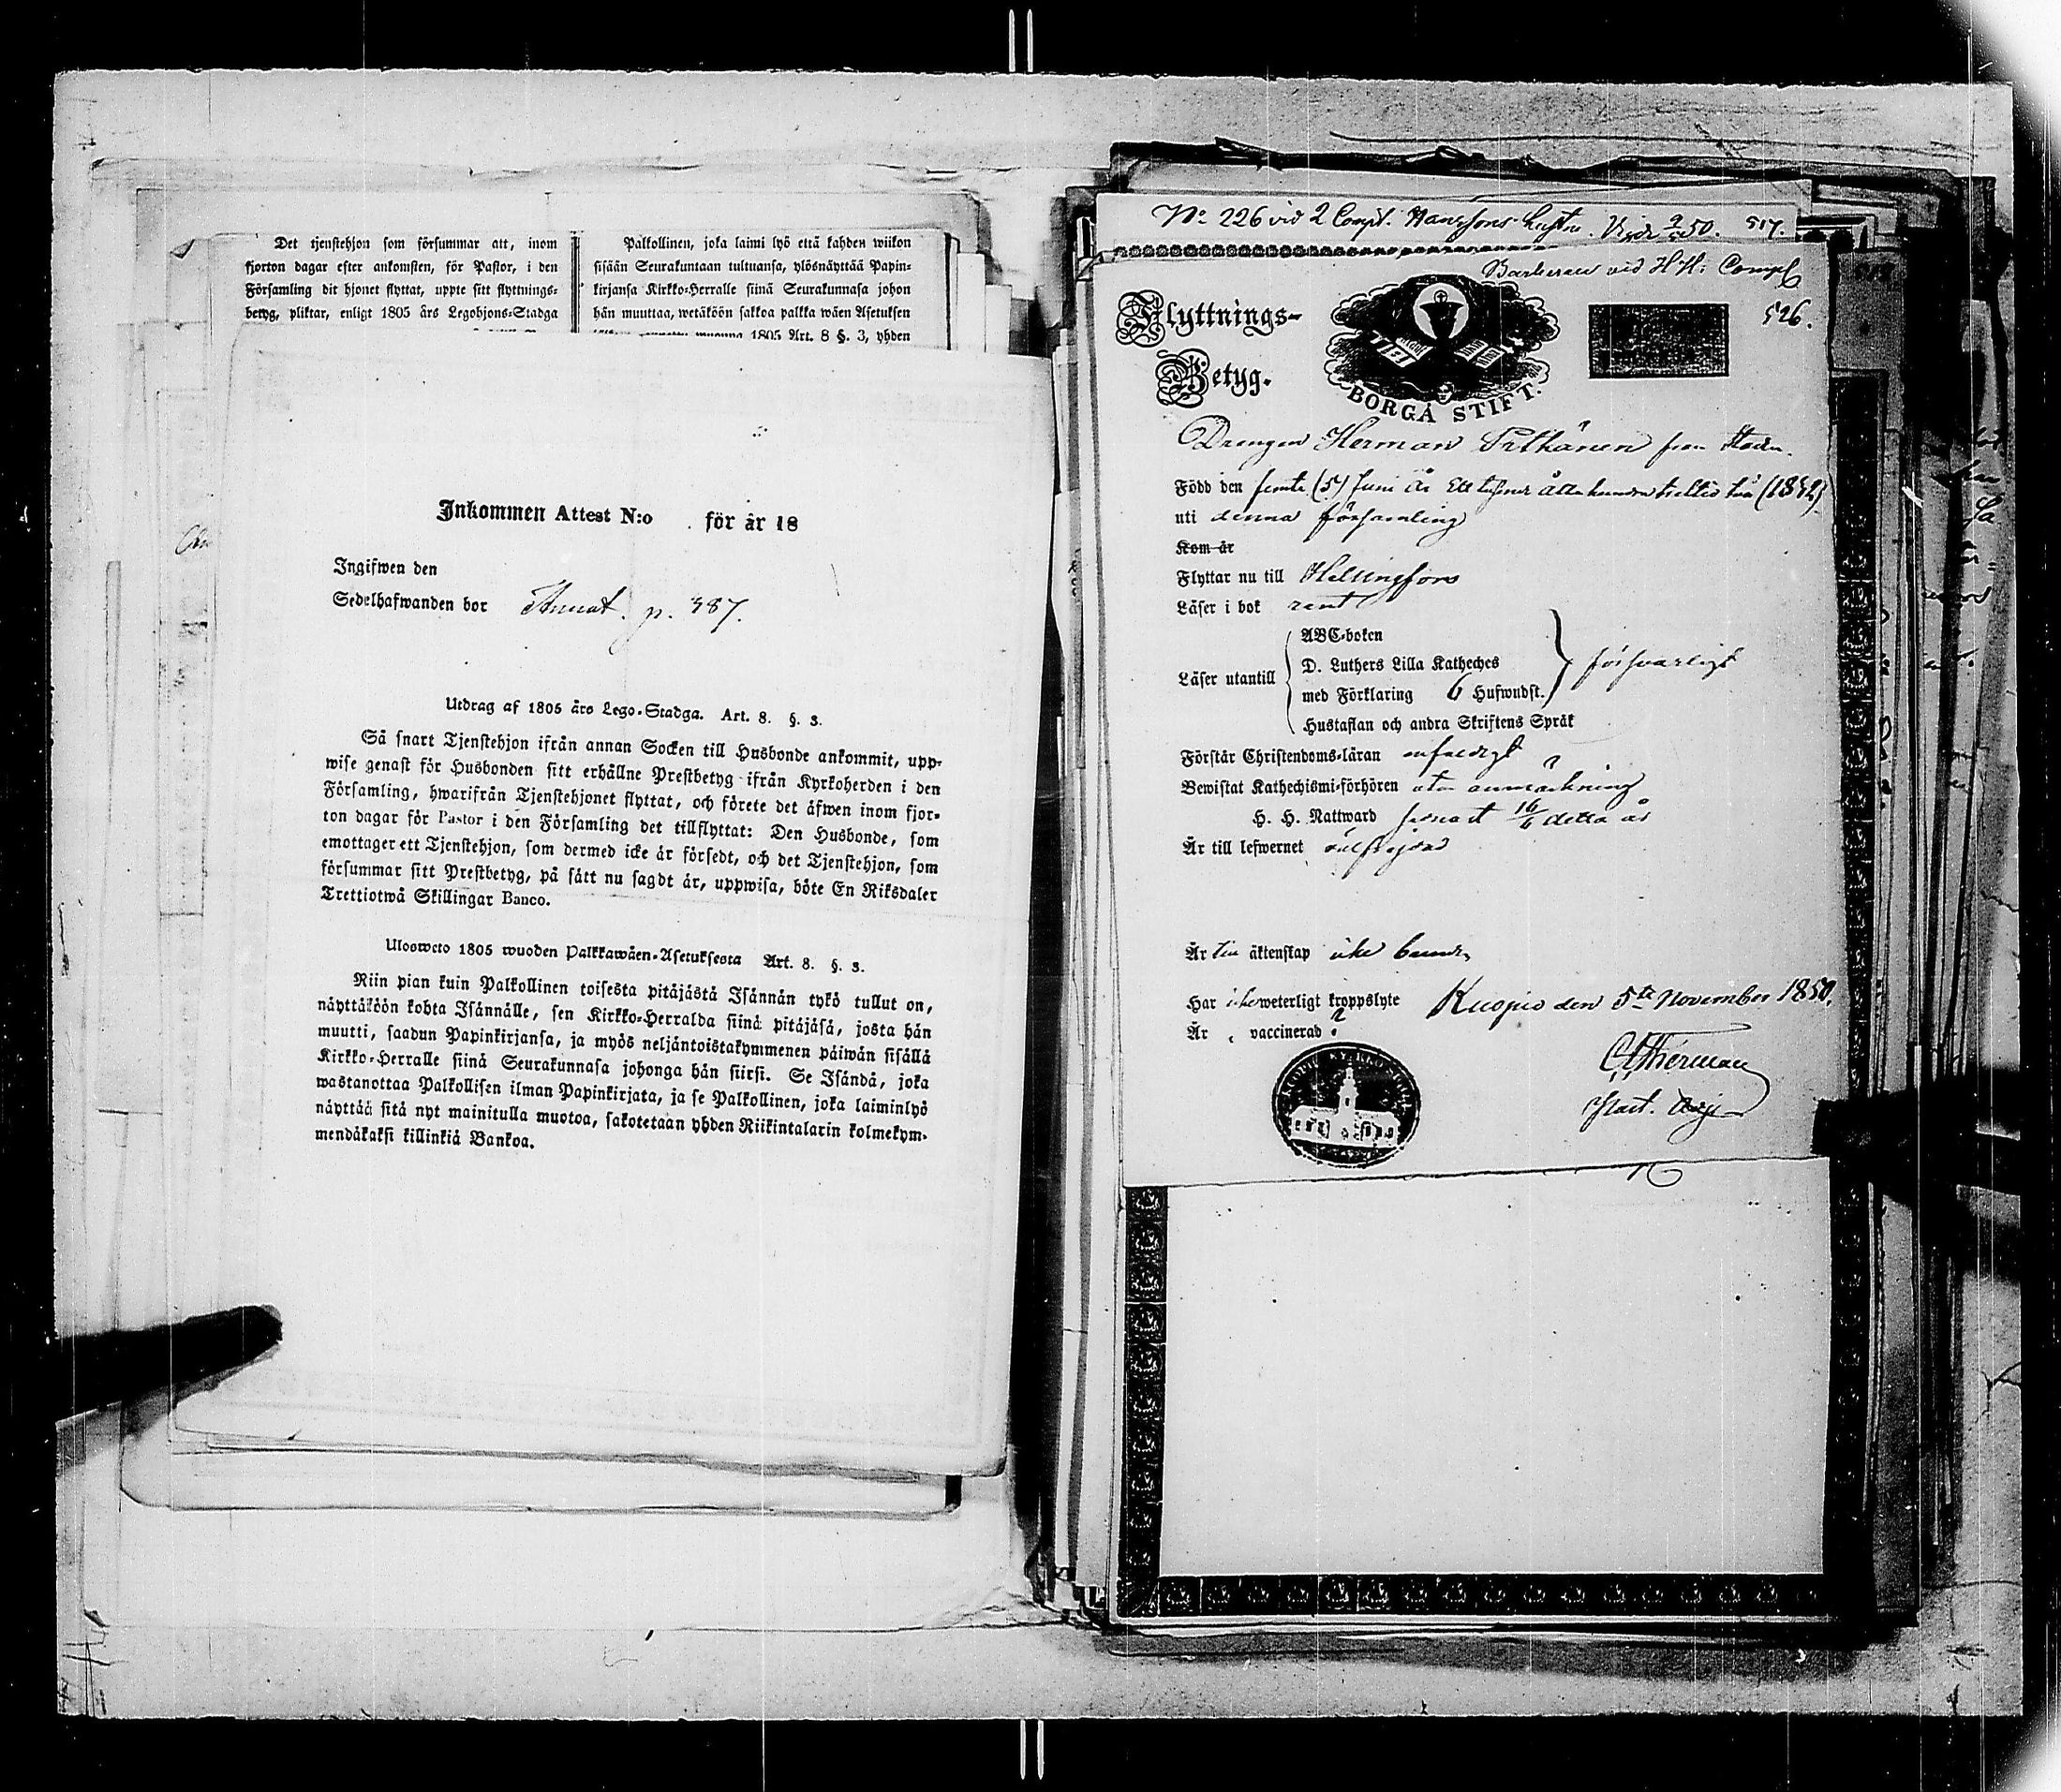 Det tjenstehjon som försummar att, inom
fjorton dagar efter ankomsten, för Pastor, i den
Församling dit hjonet flyttat, uppte sitt flyttnings-
betyg, pliktar, enligt 1805 års Legohjons-Stadga
Palkollinen, joka laimi lyö että kahden wiikon
sisään Seurakuntaan tultuansa, ylösnäyttää Papin-
kirjansa Kirkko-Herralle siinä Seurakunnasa johon
hän muuttaa, wetäköön sakkoa palkka wäen Asetuksen
1805 Art. 8 §. 3, yhden
Inkommen Attest N:o för år 18
Ingifwen den
Sedelhafwanden bor Annat. p. 387.
Utdrag af 1805 års Lego-Stadga. Art. 8. §. 3.
Så snart Tjenstehjon ifrån annan Socken till Husbonde ankommit, upp-
wise genast för Husbonden sitt erhållne Prestbetyg ifrån Kyrkoherden i den
Församling, hwarifrån Tjenstehjonet flyttat, och förete det äfwen inom fjor-
ton dagar för Pastor i den Församling det tillflyttat: Den Husbonde, som
emottager ett Tjenstehjon, som dermed icke är försedt, och det Tjenstehjon, som
försummar sitt Prestbetyg, på sätt nu sagdt är, uppwisa, böte En Riksdaler
Trettiotwå Skillingar Banco.
Uloswето 1805 wuoden Palkkawäen-Asetuksesta Art. 8. §. 3.
Niin pian kuin Palkollinen toisesta pitäjästä Isännän tykö tullut on,
näyttäköön kohta Isännälle, sen Kirkko-Herralda siinä pitäjäsä, josta hän
muutti, saadun Papinkirjansa, ja myös neljäntoistakymmenen päiwän sisällä
Kirkko-Herralle siinä Seurakunnasa johonga hän siirsi. Se Isändä, joka
wastanottaa Palkollisen ilman Papinkirjata, ja se Palkollinen, joka laiminlyö
näyttää sitä nyt mainitulla muotoa, sakotetaan yhden Riikintalarin kolmekym-
mendäkaksi killinkiä Bankoa.
No 226 vid 2 Comp. 50. 517.
vid Comp
Flyttnings-
526.
Betyg.
BORGÅ STIFT.
Drengen Herman Pitkänen från Staden.
Född den femte (5) Juni år Ett tusende åtta hundra trettio två (1832)
uti denna församling
Kom år
Flyttar nu till Helsingfors
Läser i bok rent
ABC-boken
Läser utantill D. Luthers Lilla Katheches försvarligt
med Förklaring 6 Hufwudst.
Hustaflan och andra Skriftens Språk
Förstår Christendoms-läran enfaldigt
Bewistat Kathechismi-förhören utan anmärkning
H. H. Nattward senast 16/6 detta år
Är till lefwernet välfrejdad
Är till äktenskap icke bunden
Har icke weterligt kroppslyte Kuopio den 5te November 1850.
Är vaccinerad ?
Past. Adj.